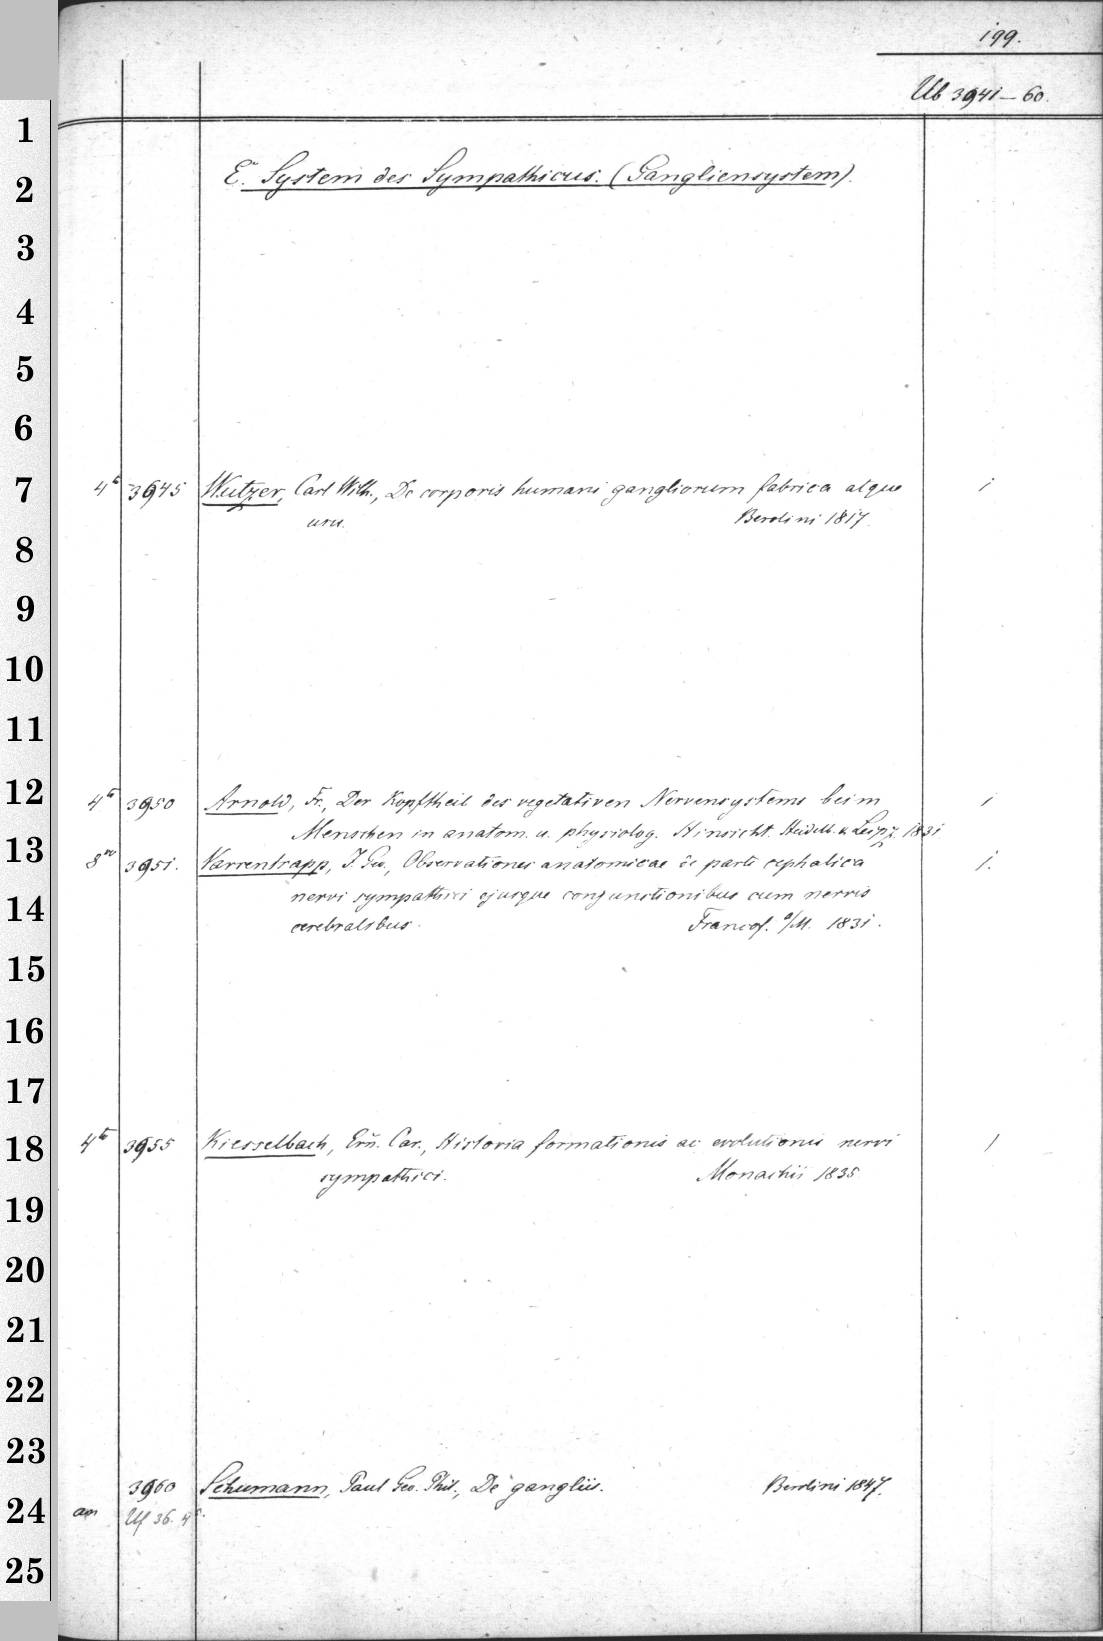 199.
Ub 3941–60.
E. System des Sympathicus. (Gangliensystem).
4to 3945 Wutzer, Carl Wilh., De corporis humani gangliorum fabrica atque 1
usu. Berolini 1817.
4to 3950 Arnold, Fr., Der Kopftheil des vegetativen Nervensystems beim 1
Menschen in anatom. u. physiolog. Hinsicht. Heidelb. u. Leipz. 1831
8vo 3951. Varrentrapp, J. Geo., Observationes anatomicae de parte cephalica 1.
nervi sympathici ejusque conjunctionibus cum nervis
cerebralibus. Francof. a/M. 1831.
4to 3955 Kiesselbach, Ern. Car., Historia formationis ac evolutionis nervi 1
sympathici. Monachii 1835.
3960 Schumann, Paul Geo. Phil., De gangliis. Berolini 1847.
an Uf 36. 4o.
1
2
3
4
5
6
7
8
9
10
11
12
13
14
15
16
17
18
19
20
21
22
23
24
25